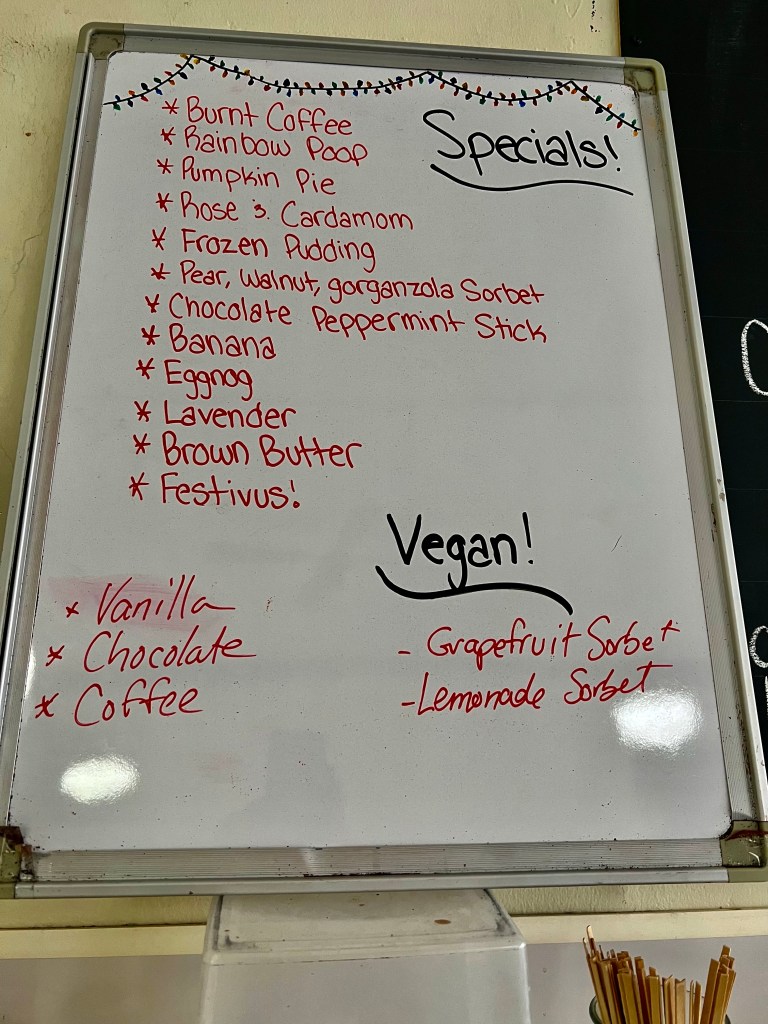 Specials!
* Burnt Coffee
* Rainbow Poop
* Pumpkin Pie
* Rose & Cardamom
* Frozen Pudding
* Pear, walnut, gorganzola Sorbet
* Chocolate Peppermint Stick
* Banana
* Eggnog
* Lavender
* Brown Butter
* Festivus!
Vegan!
* Vanilla
* Chocolate
* Coffee
- Grapefruit Sorbet
- Lemonade Sorbet